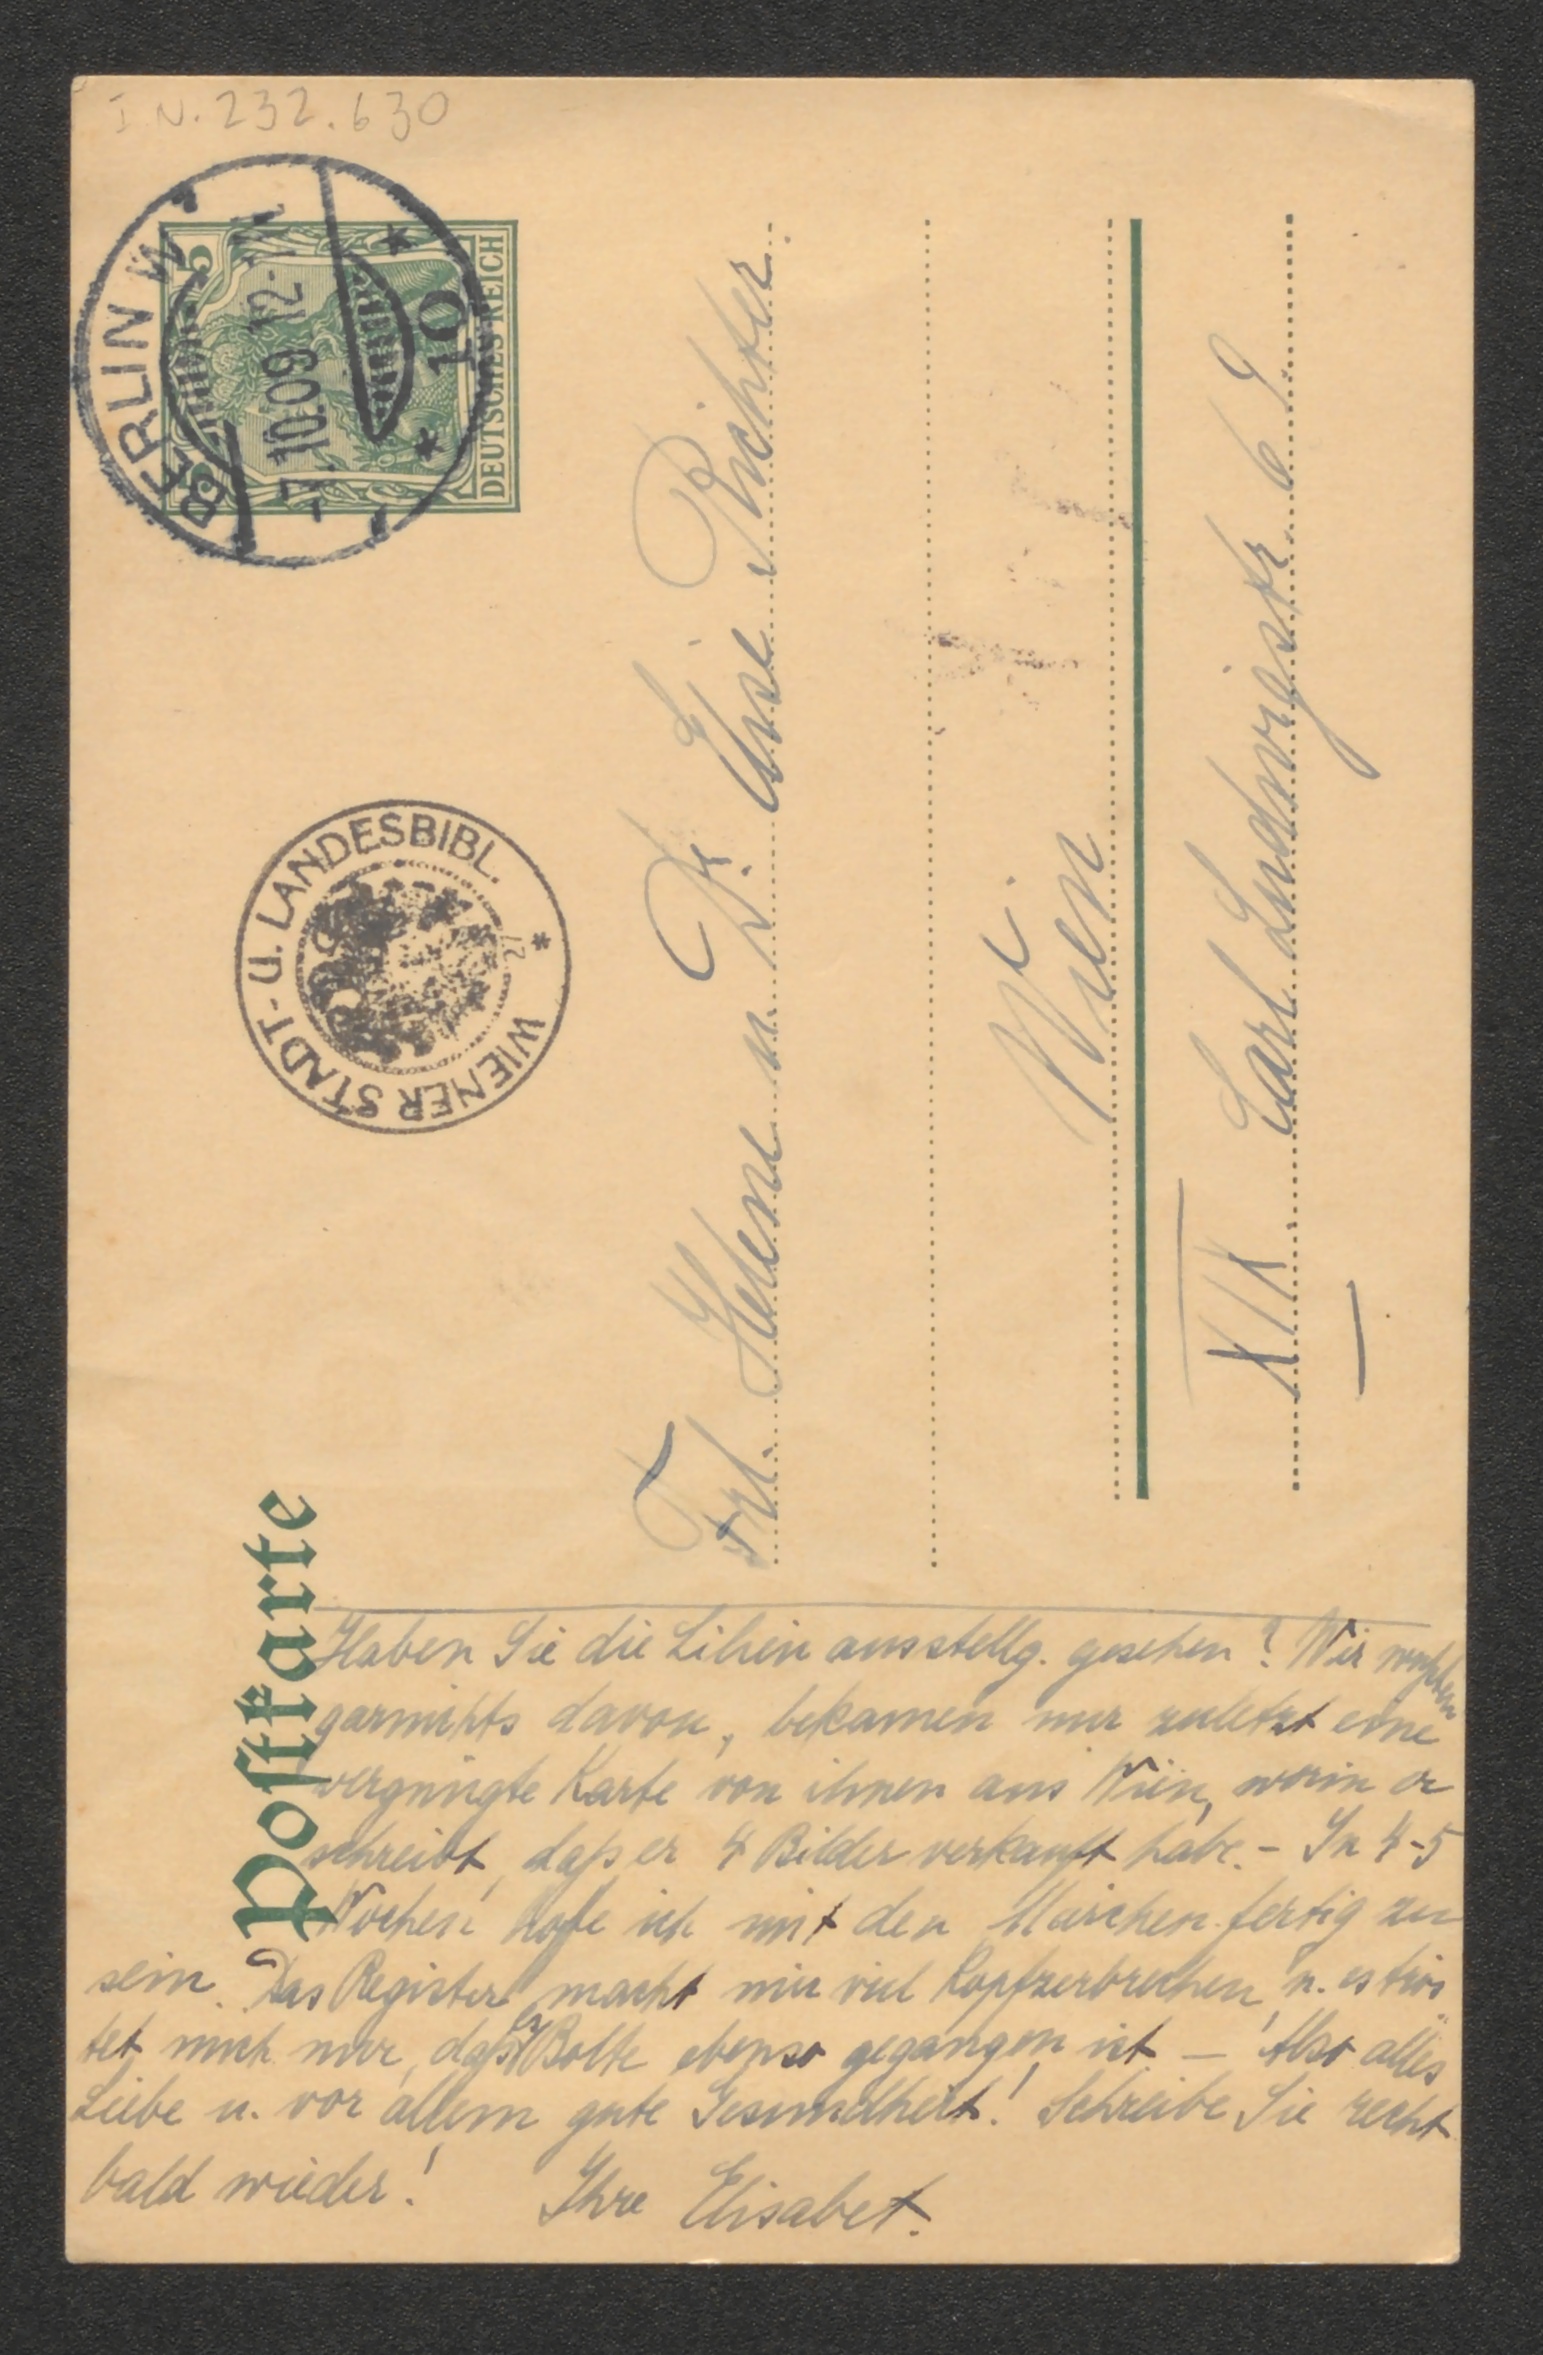 I.N. 232.630
BERLIN W
-7.10.09 12-1N
* 10 *
5 5
DEUTSCHES REICH
WIENER STADT- U. LANDESBIBL.
27
*
Postkarte
Frl. Helene u Dr. Elise Richter.
Wien
XIX Carl Ludwigstr 69
Haben Sie die Lilien ausstellg. gesehen? Wir wußten
garnichts davon, bekamen nur zuletzt eine
vergnügte Karte von ihnen aus Wien, worin er
schreibt, daß er 4 Bilder verkauft habe. - In 4-5
Wochen hoffe ich mit den Märchen fertig zu
sein. Das Register macht mir viel Kopfzerbrechen, u. es trös
tet mich nur, daß es Bolte ebenso gegangen ist - Also alles
Liebe u. vor allem gute Gesundheit! Schreibe Sie recht
bald wieder! Ihre Elisabet.